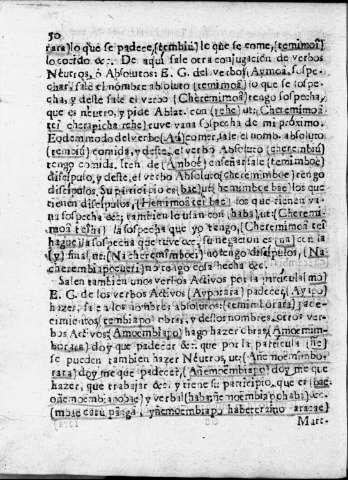 50
rara) lo que se padece, (tembiú) le que se come, (temimoî)
lo cocido &c. De aqui sale otra conjugacion de verbos
Neutros, ò Absolutos: E. G. del verbos, Aymoâ, sospe-
char, sale el nombre absoluto (temimoâ) lo que se sospe-
cha, y deste sale el verbo (Cheremimoâ) tengo sospecha,
que es neutro, y pide Ablat. con (rehe) ut; (Cheremimoâ
tei cherapicha rehe) tuve vana sospecha de mi próximo.
Eodem modo del verbo (Aú) comer, sale el nomb. absoluto
(tembiú) comida, y deste, el verbo Absoluto (cherembiú)
tengo comida. Item de (Amboê) enseñar sale (temimboe)
discipulo, y deste, el verbo Absoluto (cheremimboe) tengo
discipulos. Su participio es (bae) ut; hemimboe bae) los que
tienen discipulos, (Hemimoâ tei bae) los que tienen va-
na sospecha &c; tambien lo usan con (haba) ut; (Cheremi-
moâ teiha) la sospecha que yo tengo, (Cheremimoâ tei
hague) la sospecha que tuve &c; su negacion es (na) con la
(y) final, ut; (Na cheremimboei) no tengo discipulos, (Na
cherembiapocueri) no tengo cosa hecha &c.
Salen tambien unos verbos Activos por la particula (mo)
E. G. de los verbos Activos (Ayporara) padecer, (Ayapo)
hacer, sale a los nombres absolutos: (temimborara) pade-
cimientos, (tembiapo) obras, y destos nombres, otros ver-
bos Activos; (Amoembiapo) hago hacer obras, (Amoemim-
borara) doy que padecer &c: que por la particula (ñe)
se pueden tambien hacer Neutros, ut; (Añemoemimbo-
rara) doy me que padecer, (Añemoembiapo) doy me que
hacer, que trabajar &c. y tiene su participio, que es (bae
oñemoembiapobae) y verbal (haba ñemoembiapo haba) &c.
(mbae catú
Marc-